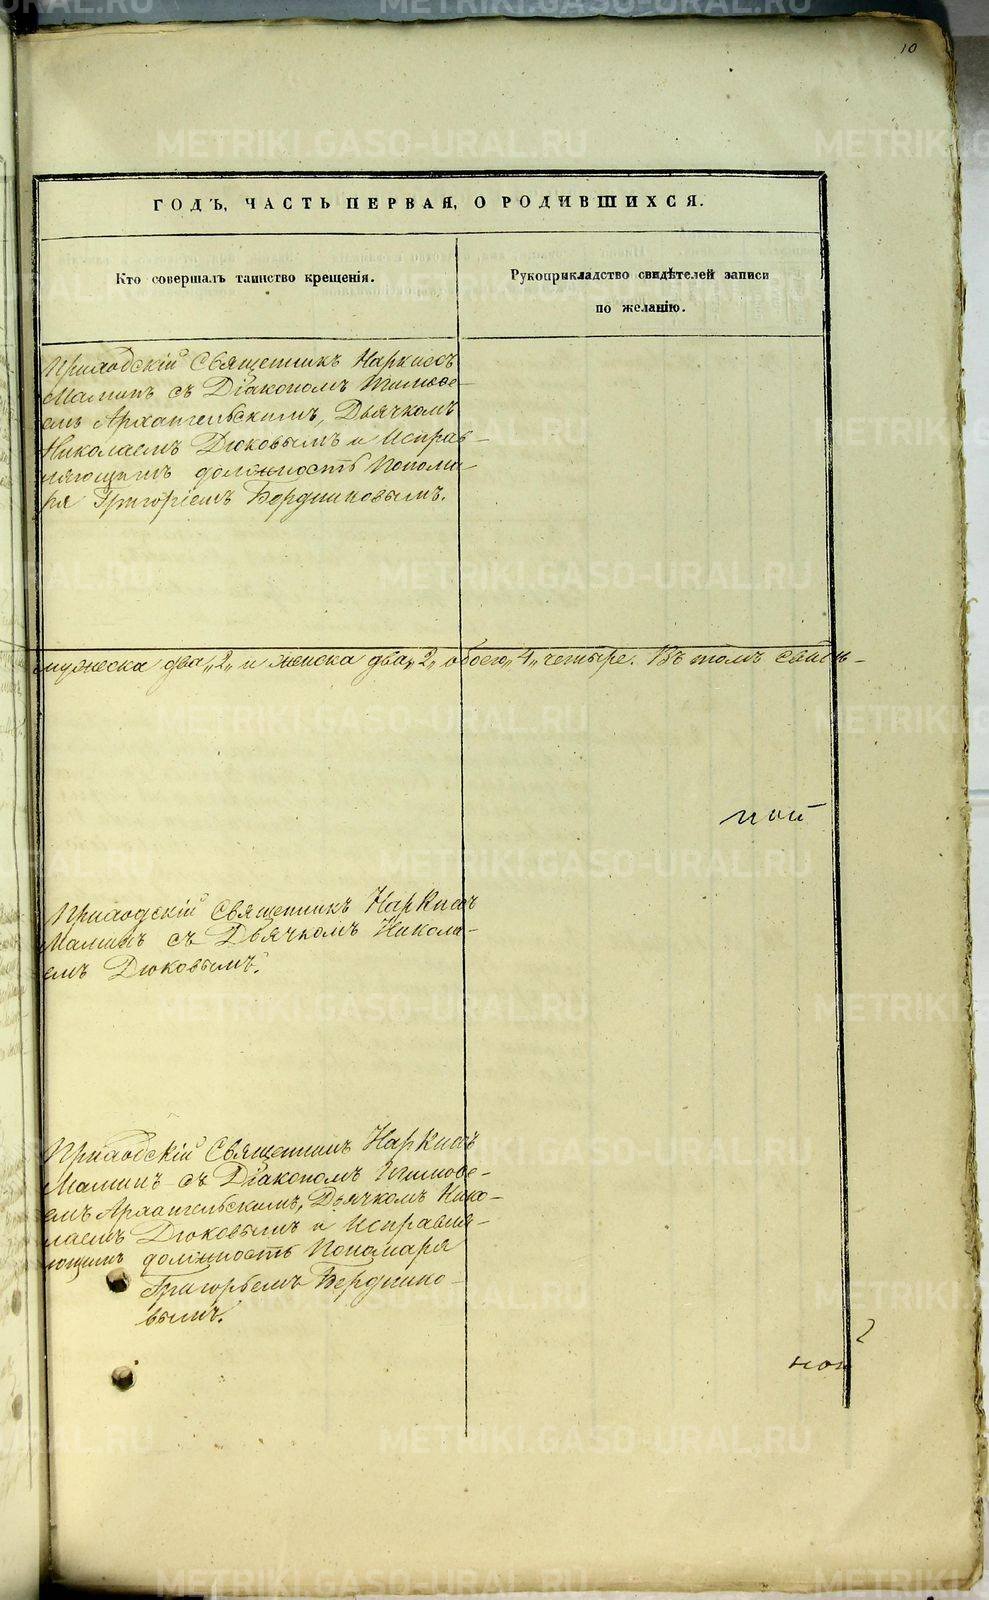 10
ГОДЪ, ЧАСТЬ ПЕРВАЯ, О РОДИВШИХСЯ.
Кто совершалъ таинство крещенія.
Рукоприкладство свидѣтелей записи
по желанію.
Приходскій Священникъ Наркиссъ
Маминъ съ Діакономъ Тимофе-
емъ Архангельскимъ, Дьячкомъ
Николаемъ Дюковымъ и Исправ-
ляющимъ должность Понома-
ря Григоріемъ Бердниковымъ.
мужеска два „2„ и женска два „2„ обоего „4„ четыре. Въ томъ свидѣ-
Приходскій Священникъ Наркиссъ
Маминъ съ Дьячкомъ Никола-
емъ Дюковымъ.
Приходскій Священникъ Наркиссъ
Маминъ съ Діакономъ Тимофе-
емъ Архангельскимъ, Дьячкомъ Нико-
лаемъ Дюковымъ и Исправля-
ющимъ должность Пономаря
Григорьемъ Берднико-
вымъ.
2
METRIKI.GASO-URAL.RU